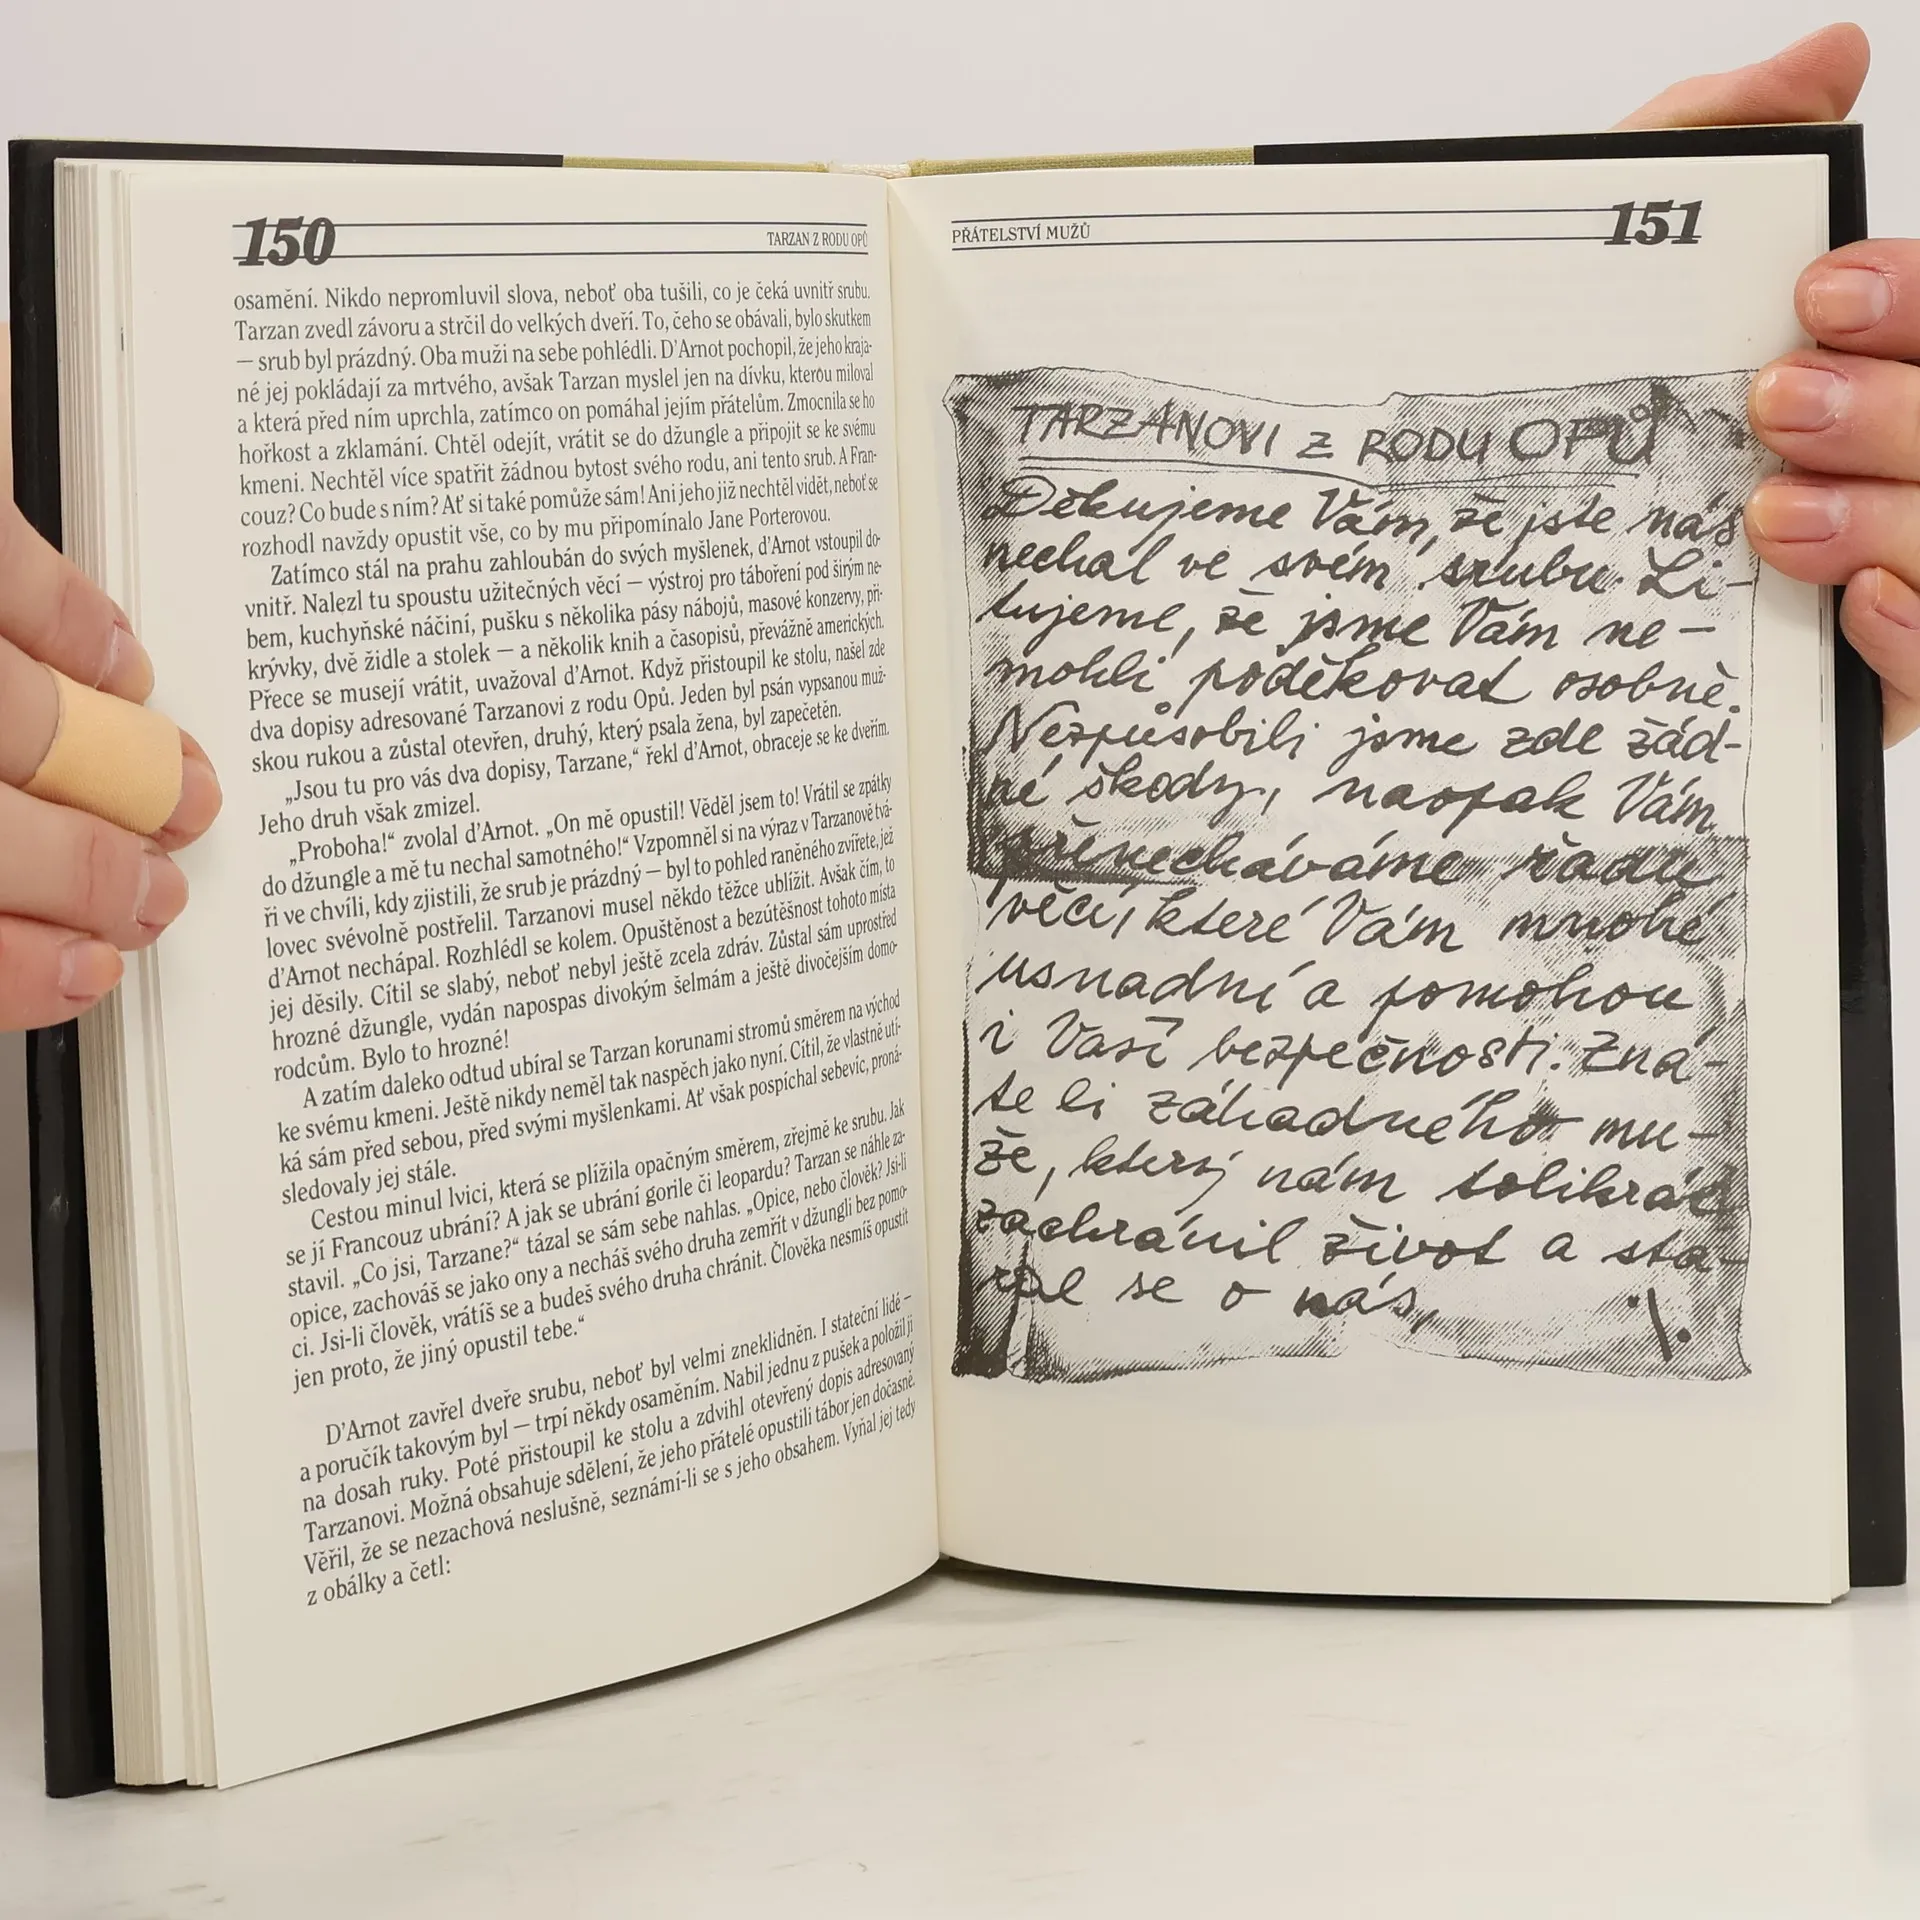 150
TARZAN Z RODU OPŮ
osamění. Nikdo nepromluvil slova, neboť oba tušili, co je čeká uvnitř srubu.
Tarzan zvedl závoru a strčil do velkých dveří. To, čeho se obávali, bylo skutkem
— srub byl prázdný. Oba muži na sebe pohlédli. D'Arnot pochopil, že jeho kraja-
né jej pokládají za mrtvého, avšak Tarzan myslel jen na dívku, kterou miloval
a která před ním uprchla, zatímco on pomáhal jejím přátelům. Zmocnila se ho
hořkost a zklamání. Chtěl odejít, vrátit se do džungle a připojit se ke svému
kmeni. Nechtěl více spatřit žádnou bytost svého rodu, ani tento srub. A Fran-
couz? Co bude s ním? Ať si také pomůže sám! Ani jeho již nechtěl vidět, neboť se
rozhodl navždy opustit vše, co by mu připomínalo Jane Porterovou.
Zatímco stál na prahu zahloubán do svých myšlenek, d'Arnot vstoupil do-
vnitř. Nalezl tu spoustu užitečných věcí — výstroj pro táboření pod širým ne-
bem, kuchyňské náčiní, pušku s několika pásy nábojů, masové konzervy, při-
krývky, dvě židle a stolek — a několik knih a časopisů, převážně amerických.
Přece se musejí vrátit, uvažoval d'Arnot. Když přistoupil ke stolu, našel zde
dva dopisy adresované Tarzanovi z rodu Opů. Jeden byl psán vypsanou muž-
skou rukou a zůstal otevřen, druhý, který psala žena, byl zapečetěn.
„Jsou tu pro vás dva dopisy, Tarzane,“ řekl d'Arnot, obraceje se ke dveřím.
Jeho druh však zmizel.
„Proboha!“ zvolal d'Arnot. „On mě opustil! Věděl jsem to! Vrátil se zpátky
do džungle a mě tu nechal samotného!“ Vzpomněl si na výraz v Tarzanově tvá-
ři ve chvíli, kdy zjistili, že srub je prázdný — byl to pohled raněného zvířete, jež
lovec svévolně postřelil. Tarzanovi musel někdo těžce ublížit. Avšak čím, to
d'Arnot nechápal. Rozhlédl se kolem. Opuštěnost a bezútěšnost tohoto místa
jej děsily. Cítil se slabý, neboť nebyl ještě zcela zdráv. Zůstal sám uprostřed
hrozné džungle, vydán napospas divokým šelmám a ještě divočejším domo-
rodcům. Bylo to hrozné!
A zatím daleko odtud ubíral se Tarzan korunami stromů směrem na východ
ke svému kmeni. Ještě nikdy neměl tak naspěch jako nyní. Cítil, že vlastně utí-
ká sám před sebou, před svými myšlenkami. Ať však pospíchal sebevíc, proná-
sledovaly jej stále.
Cestou minul lvici, která se plížila opačným směrem, zřejmě ke srubu. Jak
se jí Francouz ubrání? A jak se ubrání gorile či leopardu? Tarzan se náhle za-
stavil. „Co jsi, Tarzane?“ tázal se sám sebe nahlas. „Opice, nebo člověk? Jsi-li
opice, zachováš se jako ony a necháš svého druha zemřít v džungli bez pomo-
ci. Jsi-li člověk, vrátíš se a budeš svého druha chránit. Člověka nesmíš opustit
jen proto, že jiný opustil tebe.“
D'Arnot zavřel dveře srubu, neboť byl velmi zneklidněn. I stateční lidé —
a poručík takovým byl — trpí někdy osaměním. Nabil jednu z pušek a položil ji
na dosah ruky. Poté přistoupil ke stolu a zdvihl otevřený dopis adresovaný
Tarzanovi. Možná obsahuje sdělení, že jeho přátelé opustili tábor jen dočasně.
Věřil, že se nezachová neslušně, seznámí-li se s jeho obsahem. Vyňal jej tedy
z obálky a četl:
PŘÁTELSTVÍ MUŽŮ
151
TARZANOVI Z RODU OPŮ
Děkujeme Vám, že jste nás
nechal ve svém srubu. Li-
tujeme, že jsme Vám ne-
mohli poděkovat osobně.
Nezpůsobili jsme zde žád-
né škody, naopak Vám
přenecháváme řadu
věcí, které Vám mnohé
usnadní a pomohou
i Vaší bezpečnosti. Zná-
te li záhadného mu-
že, který nám tolikrát
zachránil život a sta-
ral se o nás,